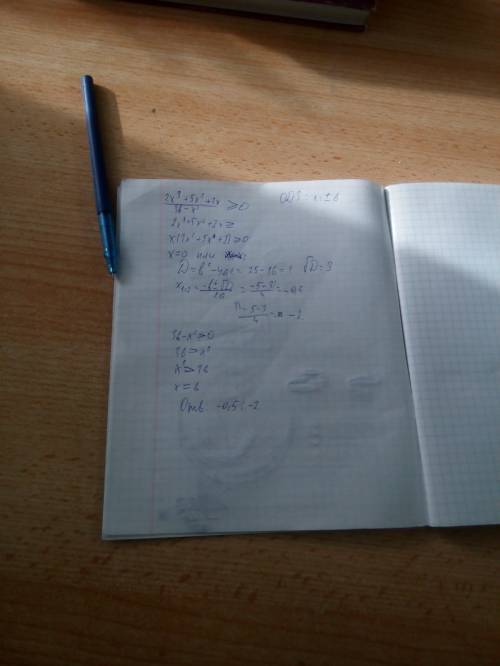 2x³+5x²+2x / 36-x² ≥0 ОДЗ: x≠±6
2x³+5x²+2x≥
x(2x²+5x+2)≥0
x=0 или
D=b²-4ac= 25-16=9 √D=3
x₁,₂= -b±√D / 2a = -5+3 / 4 =-0,5
-5-3 / 4 = -2
36-x²≥0
36≥x²
x²≥36
x=6
Отв. -0,5; -2